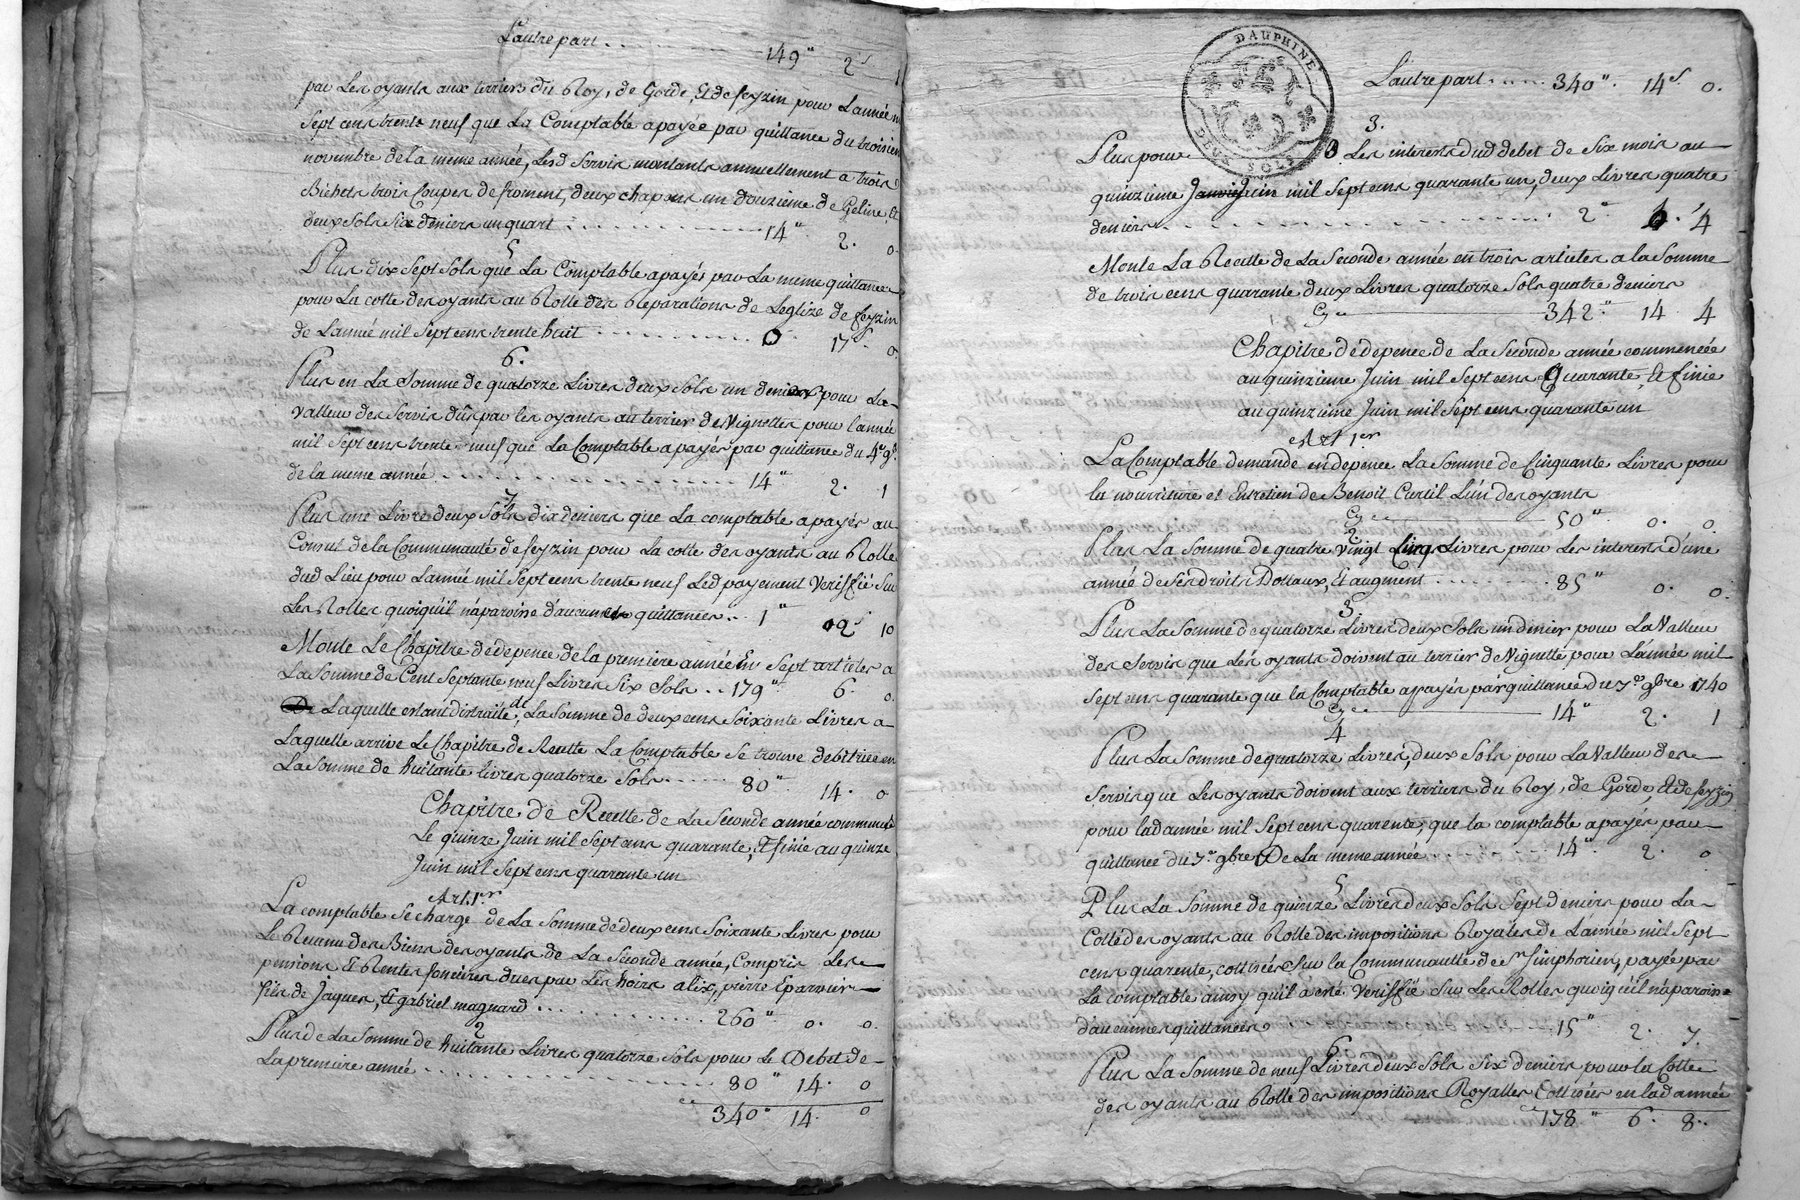 Lautre part ........ 149" 2s 1
par Les oyants aux terriers du Roy, de Gorde, Et de feyzin pour Lannée m
Sept cens trente neuf que La Comptable a payée par quittance du troisiem
novembre de la meme année, Lesd Servis montants annuellement a trois
Bichets trois Coupes de froment, deux chapons un douzieme de Geline, Et
deux Sols Six deniers un quart ........ 14" 2. 0.
5
Plus dix Sept Sols que La Comptable a payés par La meme quittance
pour La cotte des oyants au Rolle des Réparations de Leglize de feyzin
de Lannée mil Sept cens trente huit ........ 0 17s 0.
6.
Plus en La Somme de quatorze Livres deux Sols un denier pour La
valleur des Servis dûs par les oyants au terrier de Vignettes pour lannée
mil Sept cens trente neuf que La Comptable a payés par quittance du 4e 9bre
de la meme année ........ 14" 2. 1
7
Plus une Livre deux Sols dix deniers que La comptable a payés au
Consul de la Communauté de feyzin pour La cotte des oyants au Rolle
dud Lieu pour Lannée mil Sept cens trente neuf Led payement Veriffié Sur
Les Rolles quoiqu'il n'aparoisse d'aucunes quittances .. 1" 02s 10
Monte Le Chapitre de depence de la premiere année En Sept articles a
La Somme de Cent Septante neuf Livres Six Sols .. 179" 6. 0.
De Laquelle estant distraite de La Somme de deux cens Soixante Livres a
Laquelle arrive Le Chapitre de Recette La Comptable Se trouve debitrice en
La Somme de huitante livres quatorze Sols ...... 80" 14. 0
Chapitre de Recette de La Seconde année commencée
Le quinze Juin mil Sept cens quarante, Et finie au quinze
Juin mil Sept cens quarante un
Art. 1er
La comptable Se charge de La Somme de deux cens Soixante Livres pour
Le Revenu des Biens des oyants de La Seconde année, Compris Les
pensions Et Rentes foncieres dues par Les hoirs alix, pierre Eparvier
fils de Jaques, Et gabriel magnard ........ 260" 0. 0.
2
Plus de La Somme de huitante Livres quatorze Sols pour Le Debet de
La premiere année ........ 80" 14. 0
340" 14. 0
DAUPHINE
DEUX SOLS
Lautre part ..... 340". 14s 0.
3.
Plus pour Les interests dud debet de Six mois au
quinzieme Janvier Juin mil Sept cens quarante un, deux Livres quatre
deniers ........ 2" 0. 4
Monte La Recette de La Seconde année en trois articles a la Somme
de trois cens quarante deux Livres quatorze Sols quatre deniers
Cy 342" 14 4
Chapitre de depence de La Seconde année commencée
au quinzieme Juin mil Sept cens Quarante, Et finie
au quinzieme Juin mil Sept cens quarante un
Art 1er
La Comptable demande en depence La Somme de Cinquante Livres pour
la nourriture et Entretien de Benoit Curtil L'un des oyants
Cy 50". 0. 0.
2
Plus La Somme de quatre vingt Cinq Livres pour Les interests d'une
année de Ses Droits Dottaux, Et augment ........ 85" 0. 0.
3
Plus La Somme de quatorze Livres deux Sols un denier pour La Valleur
des Servis que Les oyants doivent au terrier de Vignette pour Lannée mil
Sept cens quarante que la Comptable a payés par quittance du 7e 9bre 1740
Cy 14" 2. 1
4
Plus La Somme de quatorze Livres, deux Sols pour La Valleur des
Servis que Les oyants doivent aux terriers du Roy, de Gorde, Et de feyzin
pour lad année mil Sept cens quarente, que la comptable a payés par
quittance du 7e 9bre De La meme année ........ 14" 2. 0
5
Plus La Somme de quinze Livres deux Sols Sept deniers pour La
Cotte des oyants au Rolle des impositions Royales de L'année mil Sept
cens quarente, cottisés Sur la Communautté de St Simphorien, payée par
La comptable ainsy quil a eté Veriffié Sur Les Rolles quoiqu'il n'aparoisse
d'aucunnes quittances ........ 15" 2. 7.
6.
Plus La Somme de neuf Livres deux Sols Six deniers pour la Cotte
des oyants au Rolle des impositions Royalles Cottisés en lad année
178" 6. 8.